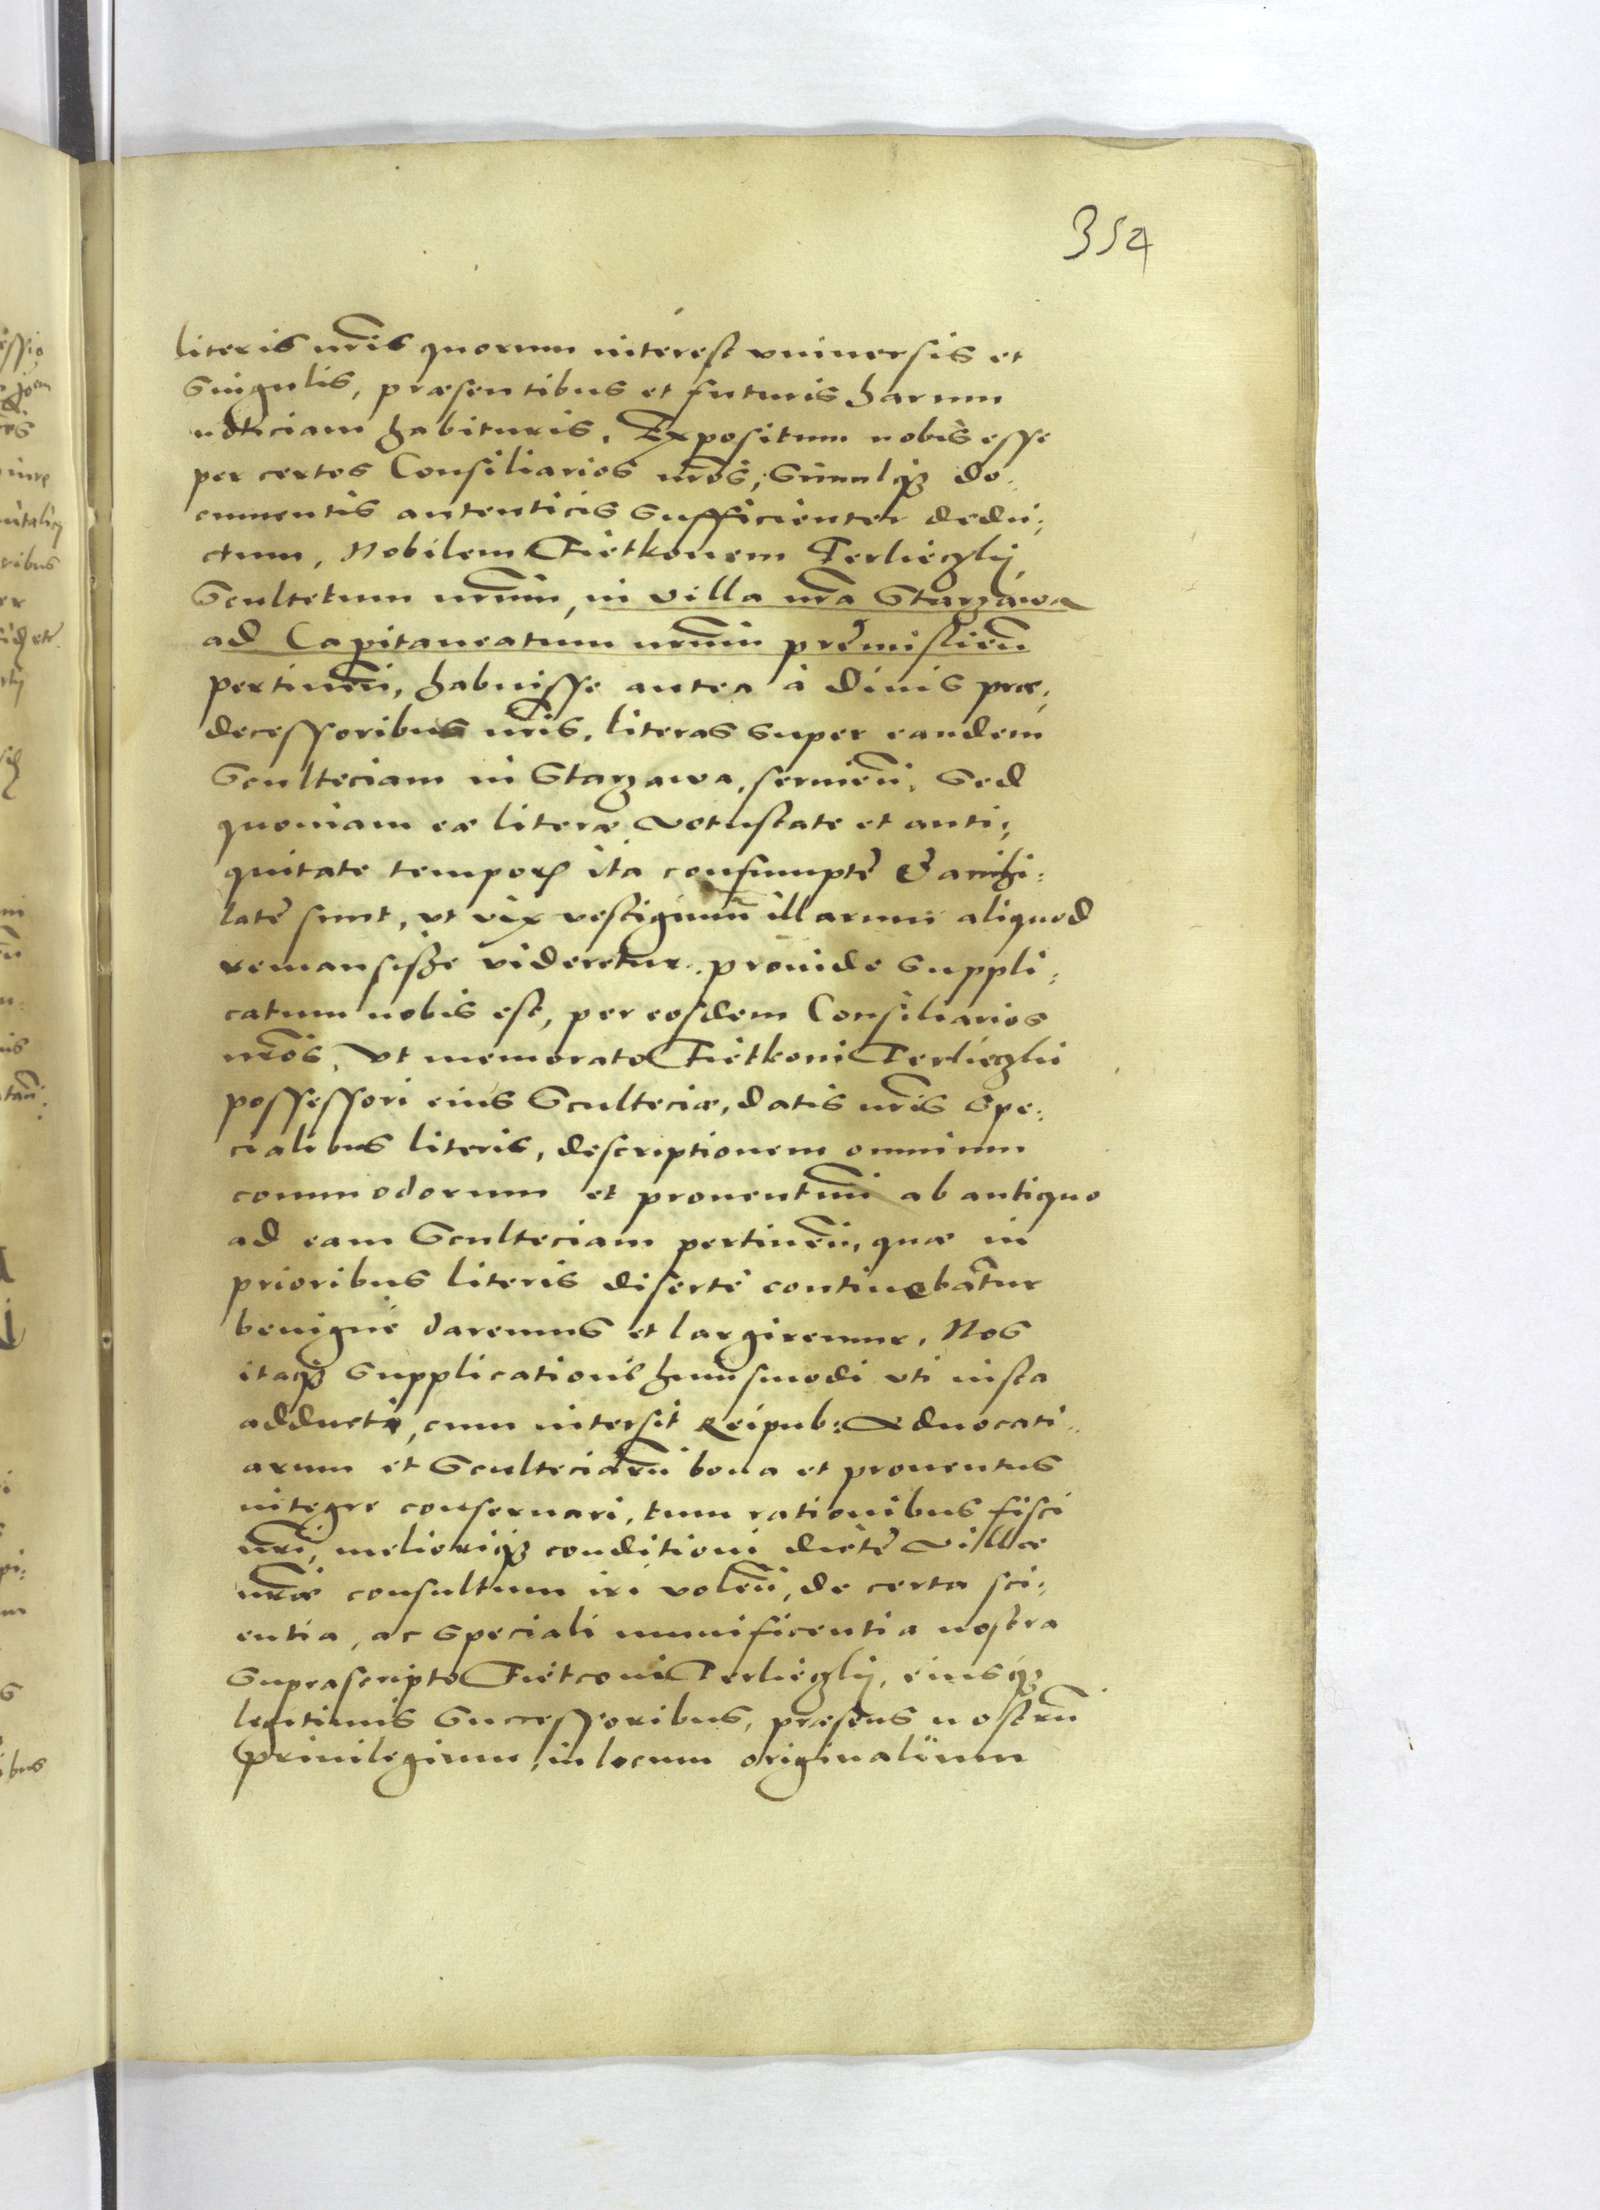 354
literis nr̃is quorum interest vniuersis et
Singulis, præsentibus et futuris harum
noticiam habituris, Expositum nobis esse
per certos Consiliarios nr̃os, Simulqꝫ do:
cumentis autenticis Sufficienter dedu:
ctum, Nobilem Fietkonem Terlieczkij
Scultetum nr̃um, in villa nr̃a Starzawa
ad Capitaneatum nr̃um premislieñ
pertineñ, habuisse antea à diuis præ:
decessoribus nr̃is, literas super eandem
Sculteciam in Starzawa, seruieñ, Sed
quoniam eæ literæ vetustate et anti:
quitate temporꝝ ita consumptę & anihi:
latę sunt, vt vix vestigium illarum aliquod
remansisse videretur, proinde Suppli:
catum nobis est, per eosdem Consiliarios
nr̃os, Vt memorato Fietkoni Terlieczkii
possessori eius Sculteciæ, datis nr̃is Spe:
cialibus literis, descriptionem omnium
commodorum et prouentuum ab antiquo
ad eam Scultetiam pertineñ, quæ in
prioribus literis disertè continebantur
benignè daremus et largiremur, Nos
itaqꝫ Supplicationi huiusmodi vti iusta
adducti, cum intersit Reipub: Aduocati:
arum et Scultetiarũ bona et prouentus
integre conseruari, tum rationibus fisci
nr̃i, melioriqꝫ conditioni dictę Villæ
nr̃æ consultum iri voleñ, de certa sci:
entia, ac Speciali munificentia nostra
Suprascripto Fietconi Terlieczkij, eiusqꝫ
legitimis Successoribus, præsens nostrũ
Priuilegium, in locum originalium